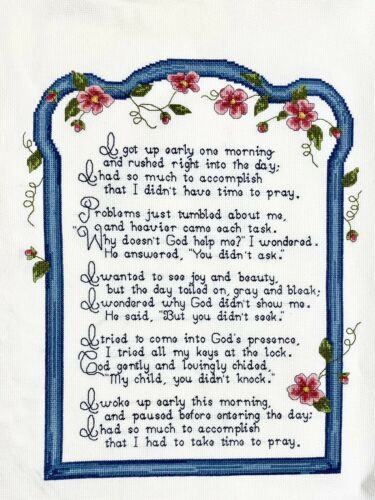 I got up early one morning
and rushed right into the day;
I had so much to accomplish
that I didn't have time to pray.
Problems just tumbled about me,
and heavier came each task.
Why doesn't God help me?" I wondered.
He answered, "You didn't ask."
I wanted to see joy and beauty,
but the day toiled on, gray and bleak;
I wondered why God didn't show me.
He said, "But you didn't seek."
I tried to come into God's presence,
I tried all my keys at the lock.
God gently and lovingly chided,
"My child, you didn't knock."
I woke up early this morning,
and paused before entering the day;
I had so much to accomplish
that I had to take time to pray.